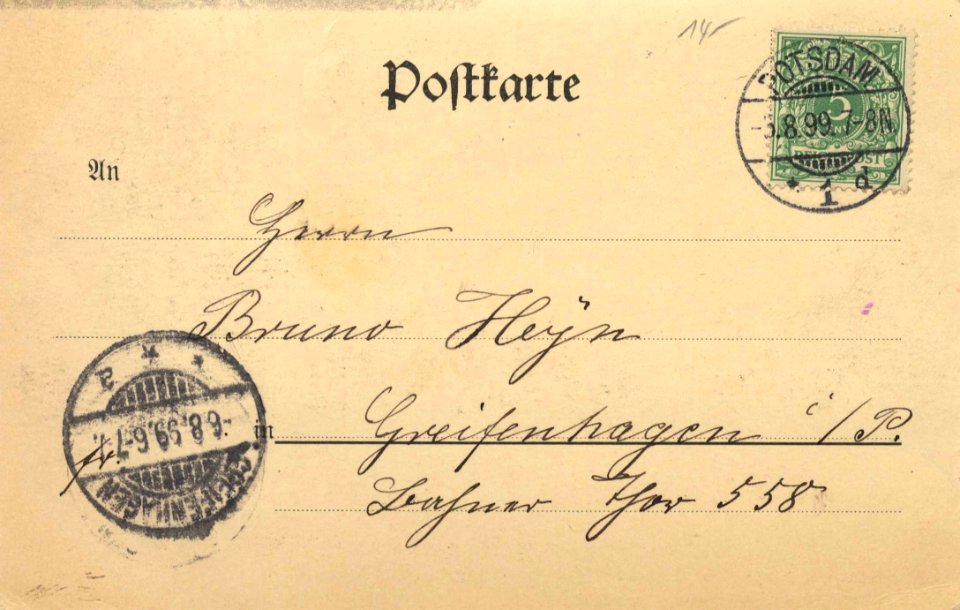 14-
Postkarte
POTSDAM
5
-5.8.99.7-8N.
* 1 d
An
Herrn
Bruno Heÿn
in Greifenhagen i/P.
Bahner Thor 558
fr.
GREIFENHAGEN
-6.8.99.6-7
* * a